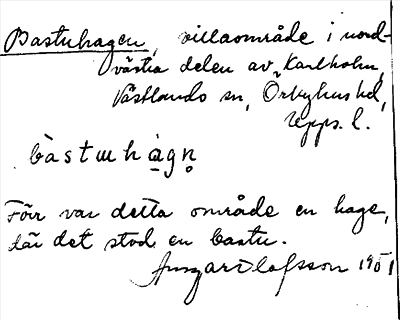 Bastuhagen, villaområde i nord-
västra delen av Karlholm,
Västlands sn, Örbyhus hd,
Upps. l.
bàstuhàgn̥
Förr var detta område en hage,
där det stod en bastu.
Ansgar Olofsson 1951